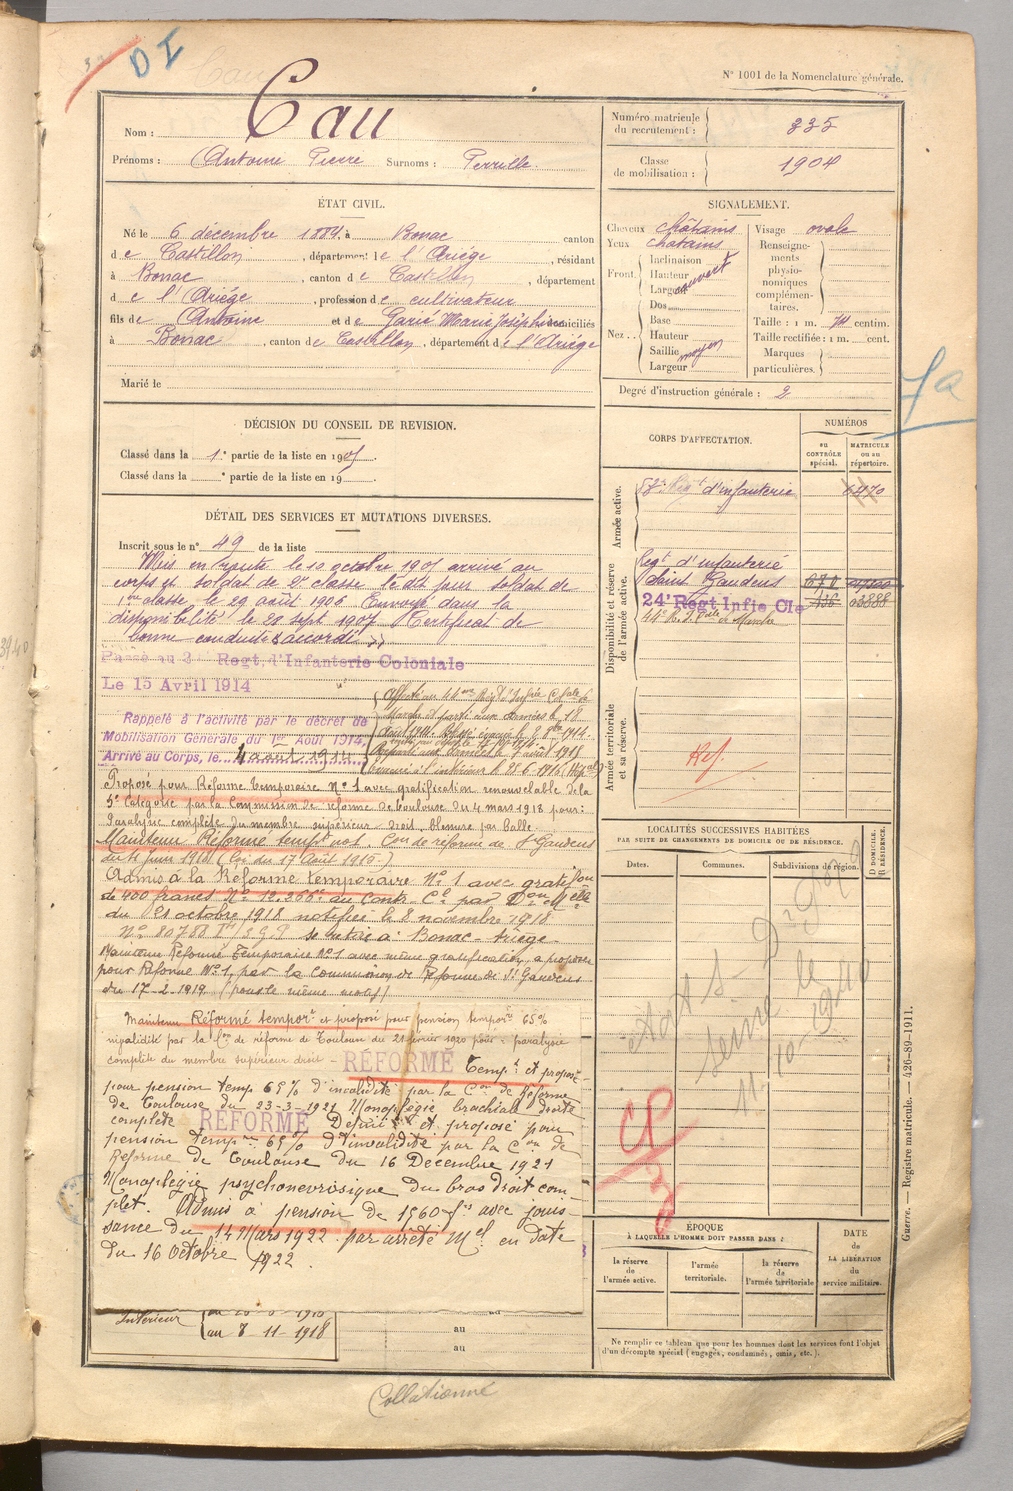 DI
N° 1001 de la Nomenclature générale.
Nom : Cau
Prénoms : Antoine Pierre Surnoms : Perrille.
Numéro matricule du recrutement : 335
Classe de mobilisation : 1904
ÉTAT CIVIL.
Né le 6 décembre 1884, à Bonac, canton
de Castillon, département de l'Ariége, résidant
à Bonac, canton de Castillon, département
de l'Ariége, profession de cultivateur
fils de Antoine et de Garié Marie Joséphine domiciliés
à Bonac, canton de Castillon, département de l'Ariége
Marié le
SIGNALEMENT.
Cheveux châtains
Yeux châtains
Front. Inclinaison
Hauteur
Largeur couvert
Nez .. Dos
Base
Hauteur
Saillie
Largeur moyen
Visage ovale
Renseignements physionomiques complémentaires.
Taille : 1 m. 74 centim.
Taille rectifiée : 1 m. cent.
Marques particulières.
Degré d'instruction générale : 2
DÉCISION DU CONSEIL DE REVISION.
Classé dans la 1e partie de la liste en 1905.
Classé dans la ° partie de la liste en 19
CORPS D'AFFECTATION.
NUMÉROS
au CONTRÔLE spécial.
MATRICULE ou au répertoire.
Armée active.
Regt d'infanterie 6470
Disponibilité et réserve de l'armée active.
Regt d'infanterie
Saint Gaudens 670
24e Regt Infie Cle 436 03888
44e R. I. Cale de Marche
Armée territoriale et sa réserve.
Ref.
DÉTAIL DES SERVICES ET MUTATIONS DIVERSES.
Inscrit sous le n° 49 de la liste
Mis en route le 10 octobre 1905 arrivé au
corps et soldat de 2e classe le dit jour soldat de
1ère classe le 29 août 1906 Envoyé dans la
disponibilité le 28 sept 1907 Certificat de
bonne conduite accordé
Passé au 2 Regt. d'Infanterie Coloniale
Le 15 Avril 1914
Rappelé à l'activité par le décret de
Mobilisation Générale du 1er Août 1914,
Arrivé au Corps, le 4 août 1914
Affecté au 44me Régt d'Infrie Cale de
Marche et parti aux armées le 18
août 1914. Blessé évacué le
Reparti aux armées le 7 avril 1915
Evacué à l'intérieur le 25-6-1916
Proposé pour Réforme temporaire N° 1 avec gratification renouvelable de la
5e Catégorie par la Commission de réforme de Toulouse du 4 mars 1918 pour :
Paralysie complète du membre supérieur droit, blessure par balle.
Maintenu Réformé tempre no1. Con de réforme de St Gaudens
du 11 Juin 1918 (loi du 17 Août 1916-)
Admis à la Réforme temporaire N° 1 avec gratifion
de 400 francs N° 12.266 au Contr. Cl par Don Melle
du 21 octobre 1918 notifiée le 8 novembre 1918
N° 80788 se retire à Bonac - Ariège -
Maintenu Réformé Temporaire N° 1 avec même gratification, à proposer
pour Réforme N° 1, par la Commission de Réforme de St Gaudens
du 17-2-1919 (pour le même motif)
Maintenu Réformé tempore et proposé pour pension tempore 65%
invalidité par la Con de réforme de Toulouse du 21 février 1920 pour : paralysie
complète du membre supérieur droit - RÉFORMÉ Tempt et proposé
pour pension temp 65% d'invalidité par la Con de Réforme
de Toulouse du 23-3-1921 Monoplégie brachiale droite
complète RÉFORMÉ Définit et proposé pour
pension temp re 65% d'invalidité par la Con de
Réforme de Toulouse du 16 Decembre 1921
Monoplégie psychonevrosique du bras droit com-
plet. Admis à pension de 1560 fs avec jouis-
sance du 14 Mars 1922 par arrêté Mel en date
du 16 Octobre 1922.
Intérieur
au 7-11-1918
au
au
LOCALITÉS SUCCESSIVES HABITÉES
PAR SUITE DE CHANGEMENTS DE DOMICILE OU DE RÉSIDENCE.
Dates. Communes. Subdivisions de région.
D. DOMICILE. R. RÉSIDENCE.
Seine le
11-10-1940
ÉPOQUE
À LAQUELLE L'HOMME DOIT PASSER DANS :
la réserve de l'armée active.
l'armée territoriale.
la réserve de l'armée territoriale
DATE DE LA LIBÉRATION du service militaire.
Ne remplir ce tableau que pour les hommes dont les services font l'objet
d'un décompte spécial (engagés, condamnés, omis, etc.).
Guerre. — Registre matricule. — 426-89-1911.
Collationné